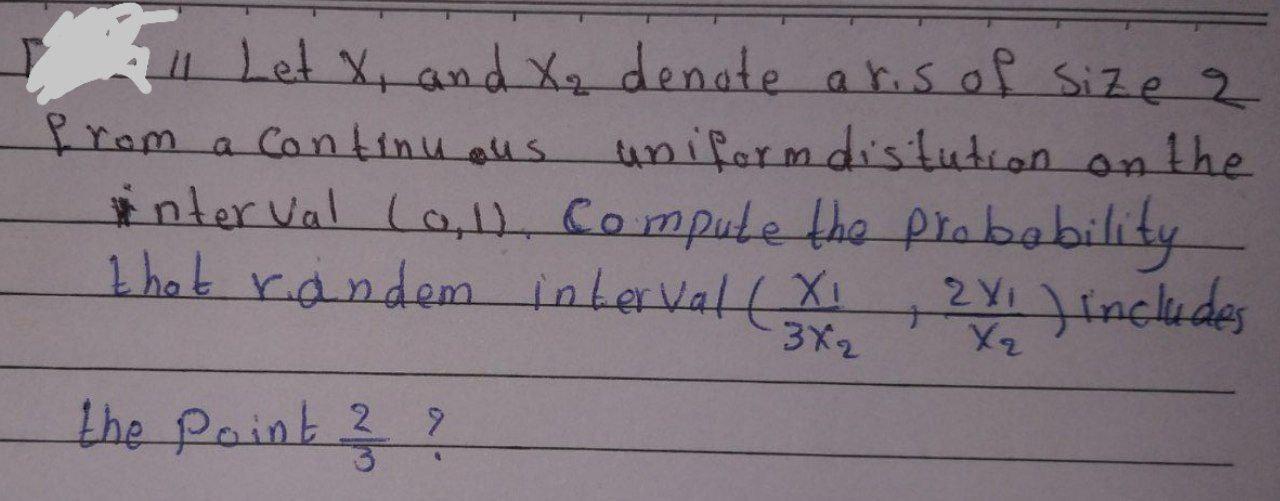 11 Let X₁ and X₂ denote a r.s of size 2
from a continuous uniform distution on the
interval (0,1). Compute the probability
that random interval (X₁/3X₂ , 2X₁/X₂) includes
the Point 2/3 ?